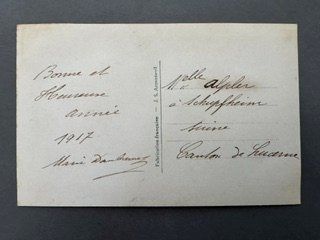 Bonne et
Heureuse
année
1917
Marie
Fabrication française
Melle Alpler
à Schüpfheim
suisse
Canton de Lucerne